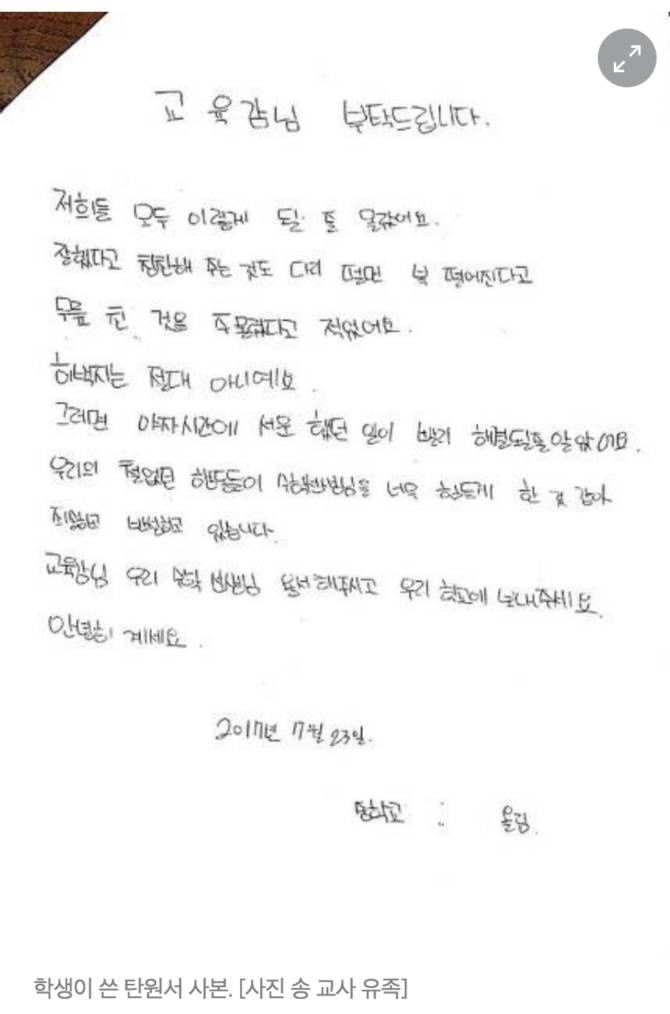 교육감님 부탁드립니다.
저희들 모두 이렇게 될 줄 몰랐어요.
잘했다고 칭찬해 주는 것도 다리 떨면 복 떨어진다고
무릎 친 것을 주물렀다고 적었어요.
허벅지는 절대 아니예요.
그러면 야자시간에 서운 했던 일이 빨리 해결될줄 알았어요.
우리의 철없던 행동들이 수학선생님을 너무 힘들게 한 것 같아
죄송하고 반성하고 있습니다.
교육감님 우리 수학 선생님 용서해주시고 우리 학교에 보내주세요.
안녕히 계세요.
2017년 7월 23일.
중학교 : 올림.
학생이 쓴 탄원서 사본. [사진 송 교사 유족]